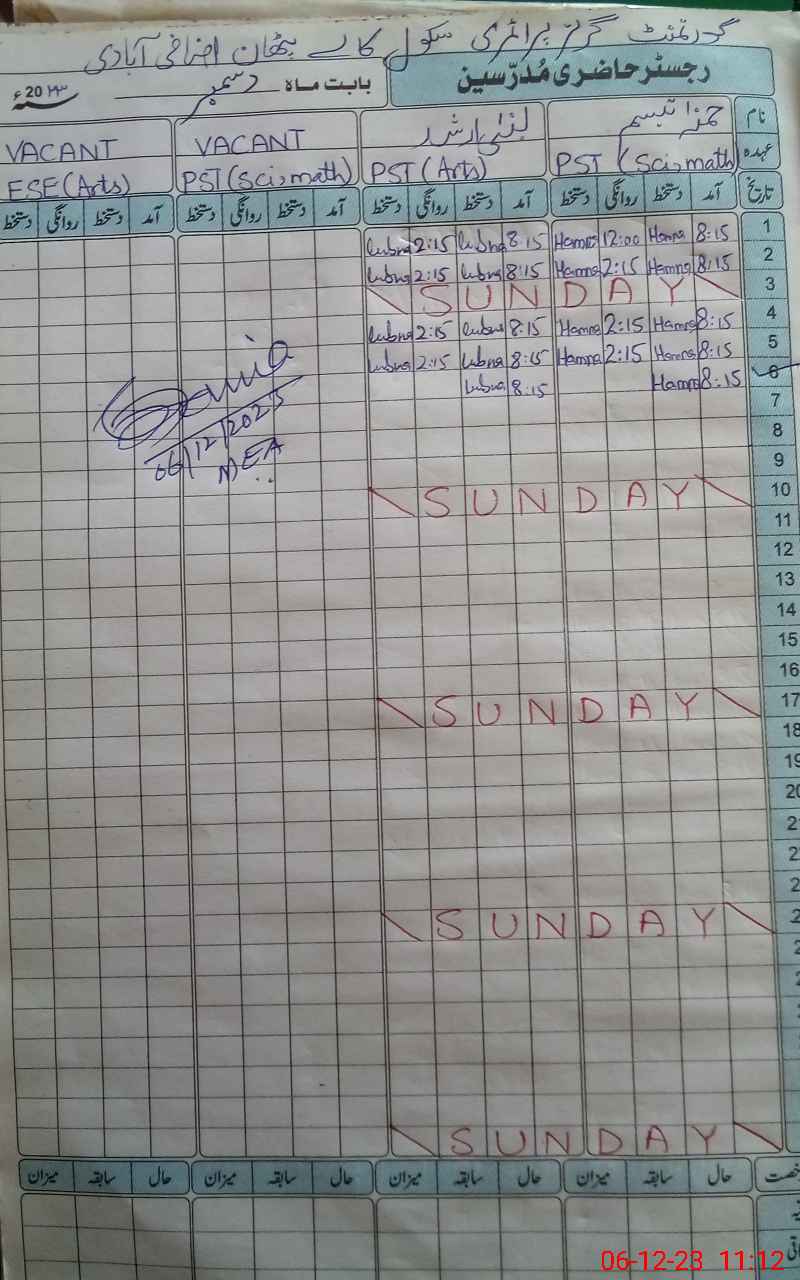 گورنمنٹ گرلز پرائمری سکول کالے پٹھان اضافی آبادی
رجسٹر حاضری مُدرّسین
بابت ماہ دسمبر 20۲۳ء
نام حمنہ تبسم لبنیٰ ارشد VACANT VACANT
عہدہ PST (Sci,math) PST (Arts) PST (Sci,math) ESE (Arts)
تاریخ آمد دستخط روانگی دستخط آمد دستخط روانگی دستخط آمد دستخط روانگی دستخط آمد دستخط روانگی دستخط
1 8:15 Hamna 12:00 Hamna 8:15 Lubna 2:15 Lubna
2 8:15 Hamna 2:15 Hamna 8:15 Lubna 2:15 Lubna
3 SUNDAY
4 8:15 Hamna 2:15 Hamna 8:15 Lubna 2:15 Lubna
5 8:15 Hamna 2:15 Hamna 8:15 Lubna 2:15 Lubna
6 8:15 Hamna 8:15 Lubna
7
06/12/2023
MEA
8
9
10 SUNDAY
11
12
13
14
15
16
17 SUNDAY
18
19
20
21
2
2
2 SUNDAY
2
2
2
SUNDAY
حال سابقہ میزان حال سابقہ میزان حال سابقہ میزان حال سابقہ میزان
06-12-23 11:12